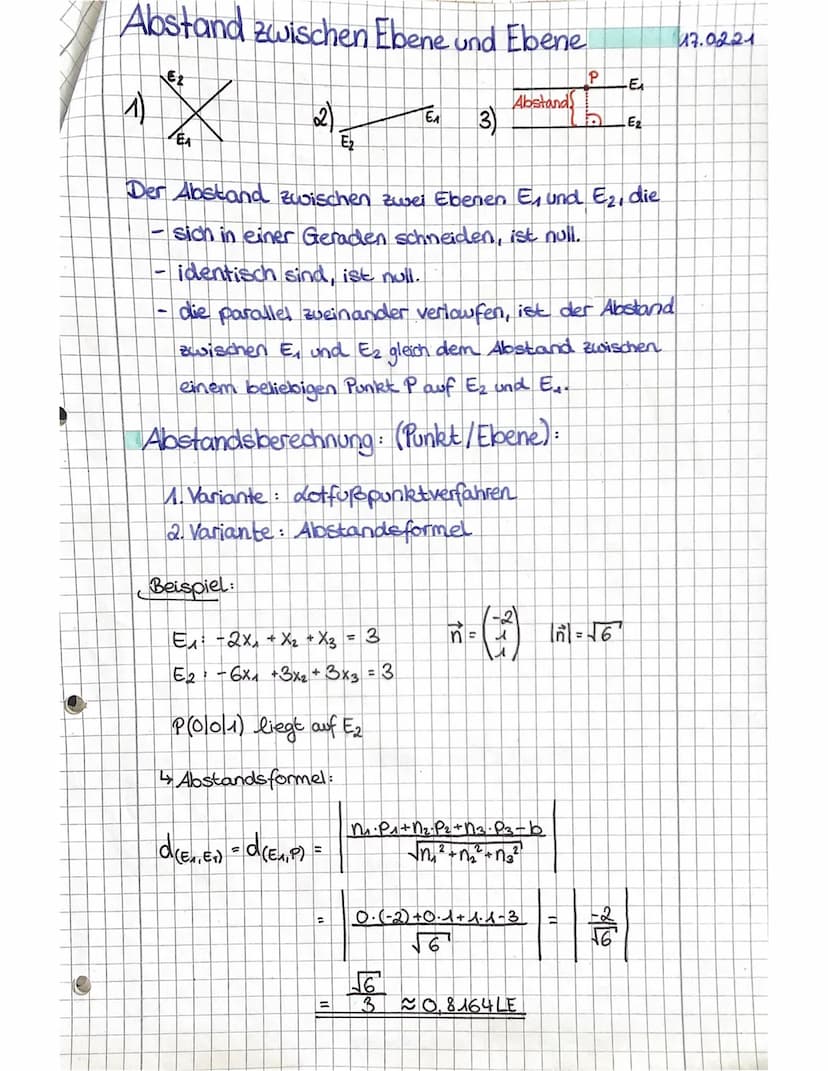 Abstand zwischen Ebene und Ebene 17.02.21
1) E2 E1
2) E1 E2
3) Abstand P E1 E2
Der Abstand zwischen zwei Ebenen E1 und E2, die
- sich in einer Geraden schneiden, ist null.
- identisch sind, ist null.
- die parallel zueinander verlaufen, ist der Abstand
zwischen E1 und E2 gleich dem Abstand zwischen
einem beliebigen Punkt P auf E2 und E1.
Abstandsberechnung: (Punkt/Ebene):
1. Variante: Lotfußpunktverfahren
2. Variante: Abstandsformel
Beispiel:
E1: -2x1 + x2 + x3 = 3 n⃗ = (-2 1 1) |n⃗| = √6
E2: -6x1 + 3x2 + 3x3 = 3
P(0|0|1) liegt auf E2
↳ Abstandsformel:
d(E1,E1) = d(E1,P) = | (n1·p1+n2·p2+n3·p3-b) / √(n1²+n2²+n3²) |
= | (0·(-2)+0·1+1·1-3) / √6 | = | -2/√6 |
= √6/3 ≈ 0,8164 LE